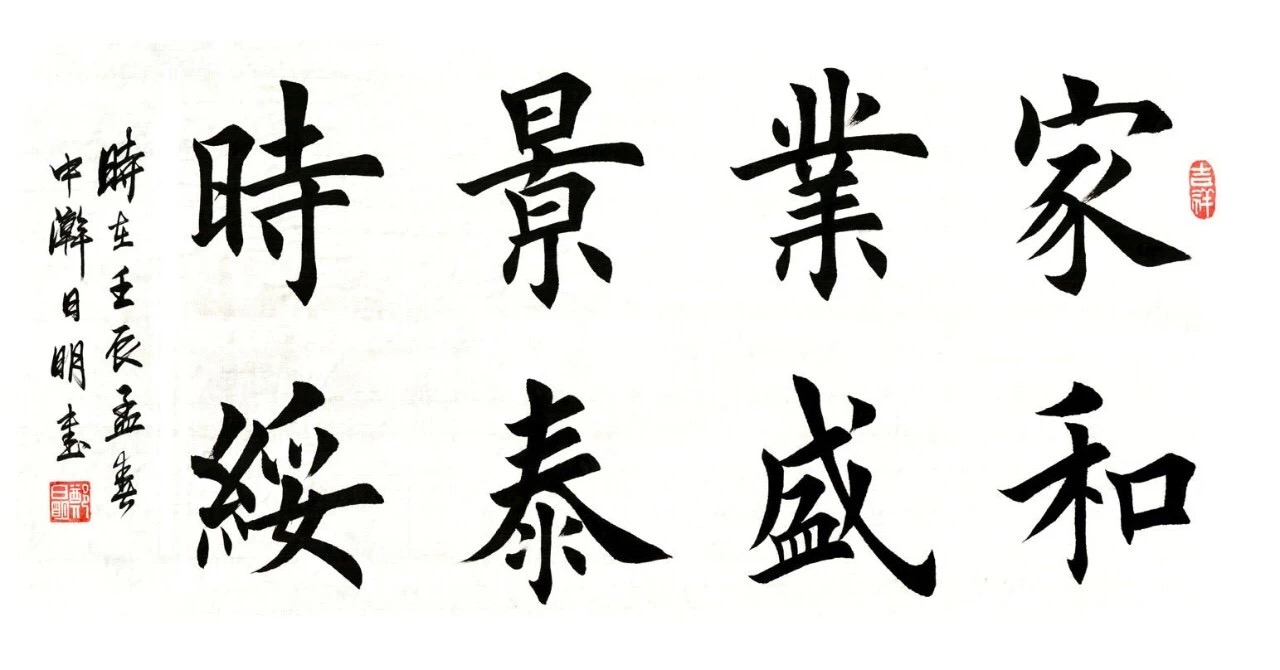 吉祥
家和
業盛
景泰
時綏
時在壬辰孟春
中瀚日明書
鄭日明